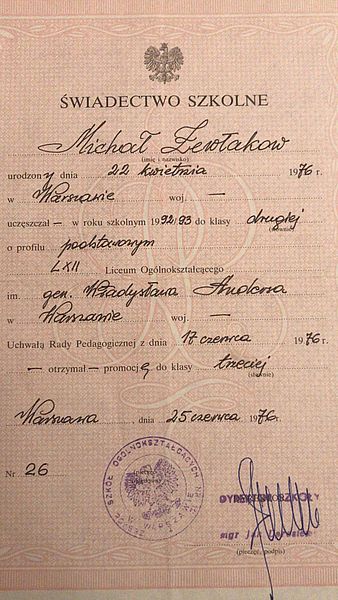 ŚWIADECTWO SZKOLNE
Michał Żewłakow
(imię i nazwisko)
urodzony dnia 22 kwietnia 1976 r.
w Warszawie woj. —
uczęszczał — w roku szkolnym 1992/93 do klasy drugiej
(słownie)
o profilu podstawowym
LXII Liceum Ogólnokształcącego
im. gen. Władysława Andersa
w Warszawie woj. —
Uchwałą Rady Pedagogicznej z dnia 17 czerwca 1976 r.
— otrzymał — promocję do klasy trzeciej
(słownie)
Warszawa, dnia 25 czerwca 1976 r.
Nr 26
ZESPÓŁ SZKÓŁ OGÓLNOKSZTAŁCĄCYCH
W WARSZAWIE
DYREKTOR SZKOŁY
mgr
(pieczęć, podpis)